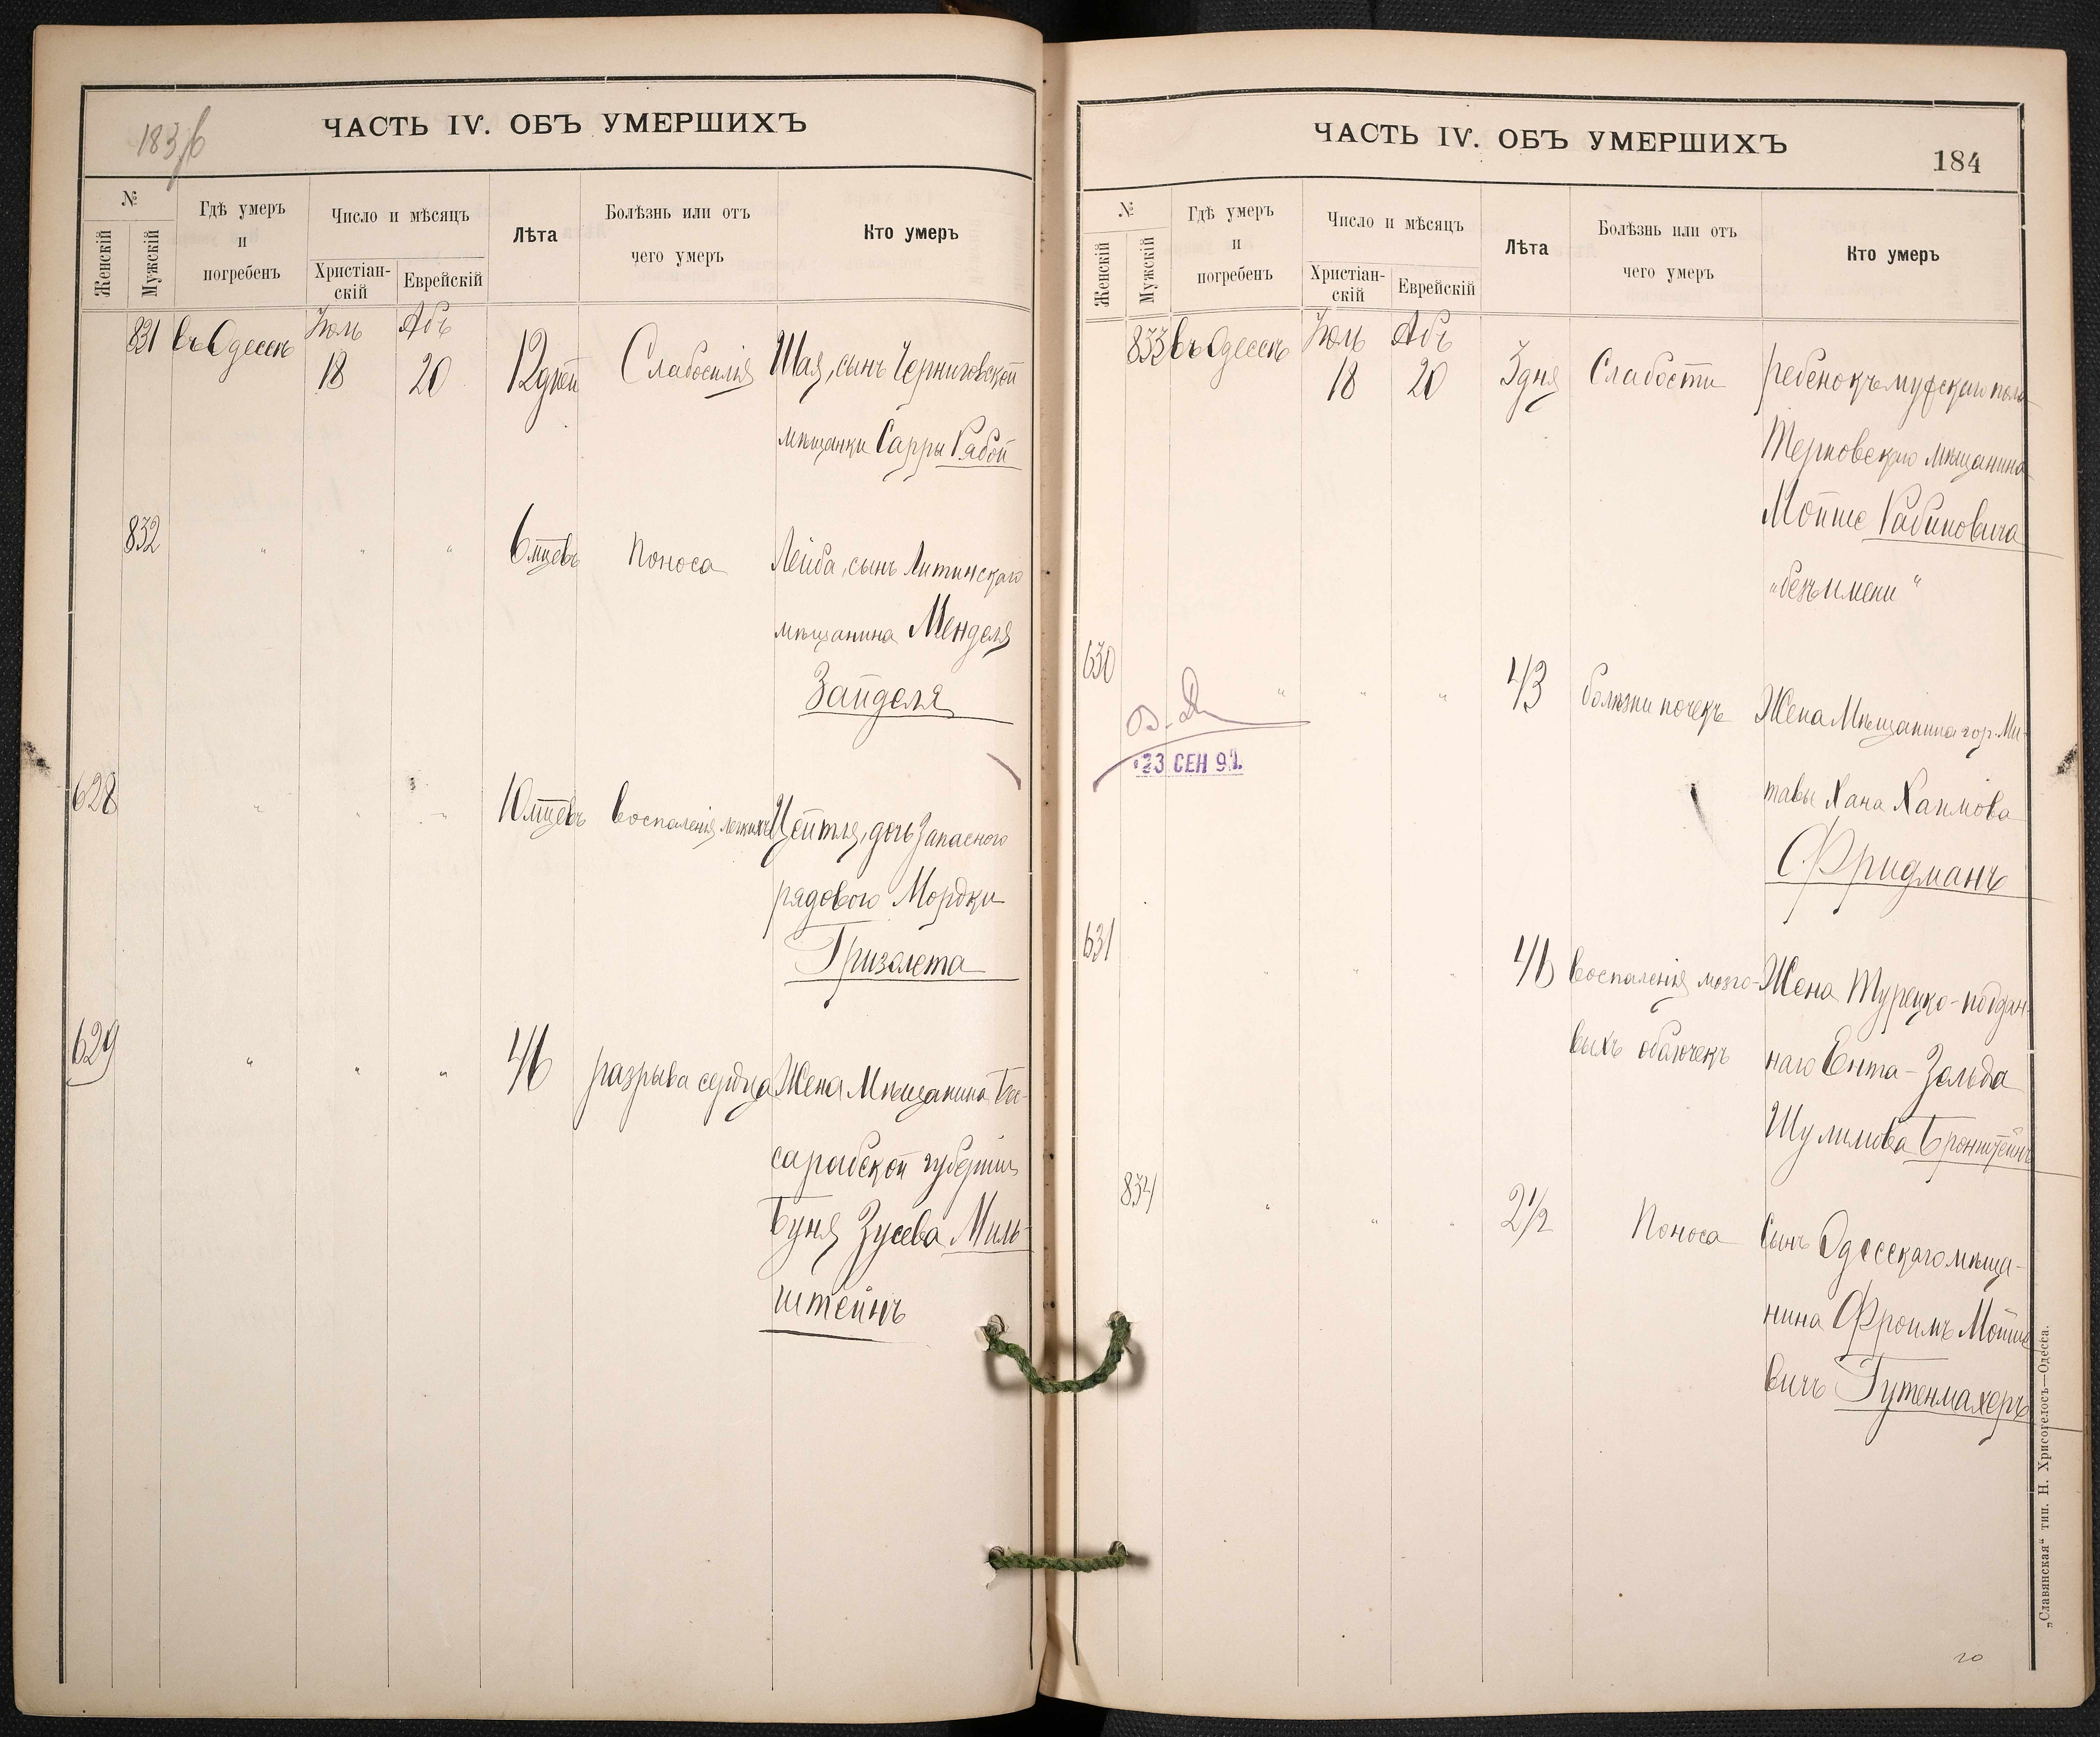 183/б
ЧАСТЬ IV. ОБЪ УМЕРШИХЪ
№
Женскій
Мужскій
Гдѣ умеръ
и
погребенъ
Число и мѣсяцъ
Христіан-
скій
Еврейскій
Лѣта
Болѣзнь или отъ
чего умеръ
Кто умеръ
831 въ Одессѣ Іюль 18 Абъ 20 12 дней Слабосилія Шая, сынъ Черниговской
мѣщанки Сарры Рабой
832 " " " 6 мцевъ Поноса Лейба, сынъ Литинскаго
мѣщанина Менделя
Зайделя
628 " " " 10 мцевъ воспаленія легкихъ Цейтля, дочь Запасного
рядового Мордки
Гризолета
629 " " " 46 разрыва сердца Жена Мѣщанина Бес-
сарабской губерніи
Буня Зусева Миль-
штейнъ
ЧАСТЬ IV. ОБЪ УМЕРШИХЪ
184
№
Женскій
Мужскій
Гдѣ умеръ
и
погребенъ
Число и мѣсяцъ
Христіан-
скій
Еврейскій
Лѣта
Болѣзнь или отъ
чего умеръ
Кто умеръ
833 въ Одессѣ Іюль 18 Абъ 20 3 дня Слабости ребенокъ мужскаго пола
Терновскаго мѣщанина
Мойше Рабиновича
"безъ имени"
630 " " " 43 болѣзни почекъ Жена Мѣщанина гор. Ми-
тавы Хана Хаимова
Фридманъ
23 СЕН 97.
631 " " " 46 воспаленія мозго- Жена Турецко-поддан-
выхъ оболочекъ наго Ента-Зольда
Шулимова Бронштейнъ
834 " " " 2 1/2 Поноса Сынъ Одесскаго мѣща-
нина Фроимъ Мойше-
вичъ Гутенмахеръ
„Славянская“ тип. Н. Хрисогелосъ—Одесса.
20